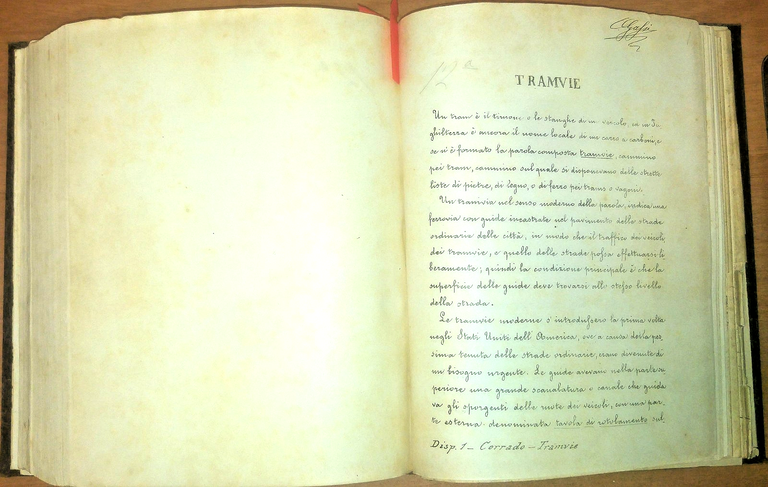 TRAMVIE
Un tram è il timone o le stanghe di un veicolo, ed in In,
ghilterra è ancora il nome locale di un carro a carbone, e
se n'è formato la parola composta tramvie, cammino
pei tram, cammino sul quale si disponevano delle strette
liste di pietre, di legno, o di ferro pei trams o vagoni.
Un tramvia nel senso moderno della parola, indica una
ferrovia con guide incastrate nel pavimento delle strade
ordinarie delle città, in modo che il traffico dei veicoli
dei tramvie, e quello delle strade possa effettuarsi li
beramente; quindi la condizione principale è che la
superficie delle guide deve trovarsi allo stesso livello
della strada.
Le tramvie moderne s'introdussero la prima volta
negli Stati Uniti dell'America, ove a causa della pes
sima tenuta delle strade ordinarie, erano divenute di
un bisogno urgente. Le guide avevano nella parte su
periore una grande scanalatura o canale che guida
va gli sporgenti delle ruote dei veicoli, con una par
te esterna denominata tavola di rotolamento sul
Disp. 1 - Corrado - Tramvie